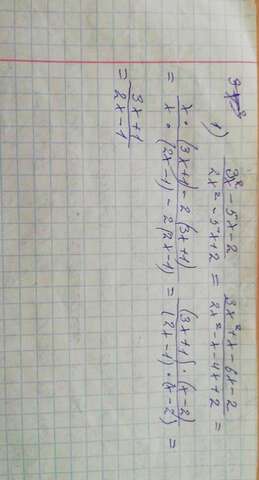 3x²
1) (3x² - 5x - 2)/(2x² - 5x + 2) = (3x² + x - 6x - 2)/(2x² - x - 4x + 2) =
= (x · (3x+1) - 2 (3x+1))/(x · (2x-1) - 2(2x-1)) = ((3x+1) · (x-2))/((2x-1) · (x-2)) =
= (3x+1)/(2x-1)